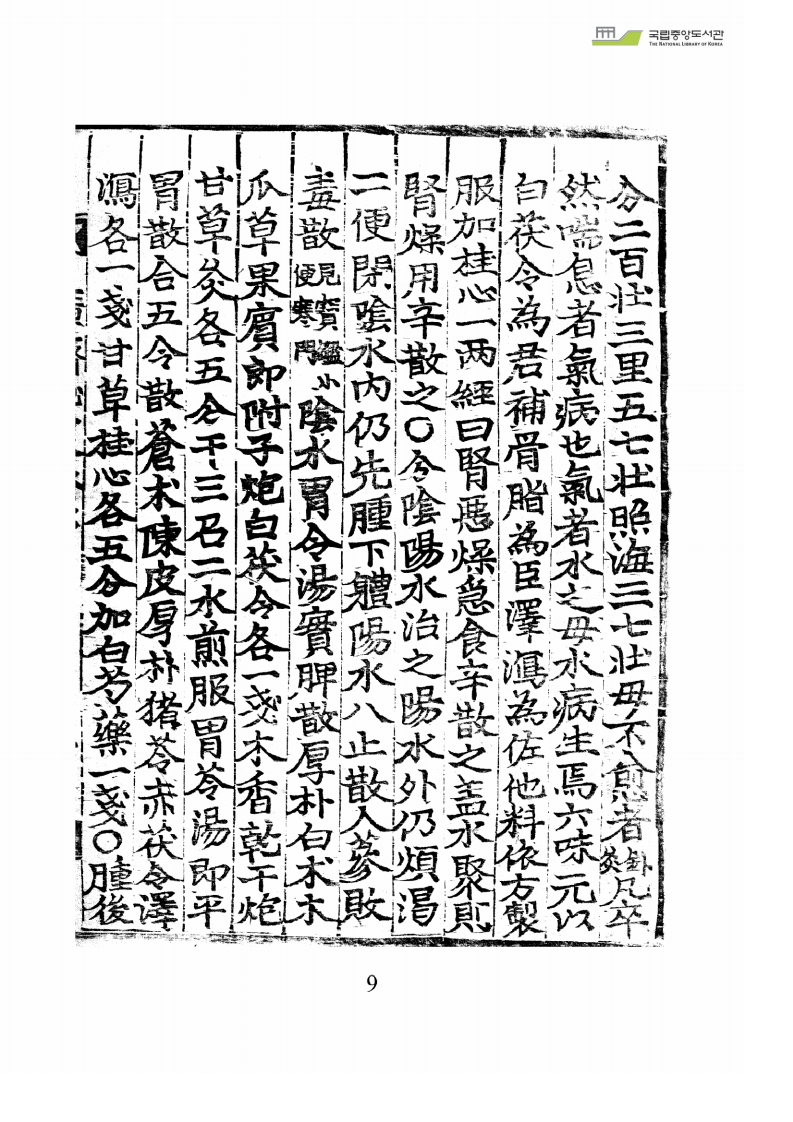 국립중앙도서관
THE NATIONAL LIBRARY OF KOREA
分二百壯三里五七壯照海三七壯毋不愈者針灸凡卒
然喘息者氣病也氣者水之母水病生焉六味元以
白茯令為君補骨脂為臣澤瀉為佐他料依方製
服加桂心一两經曰腎惡燥急食辛散之盖水聚則
腎燥用辛散之○今陰陽水治之陽水外仍煩渴
二便閉陰水內仍先腫下軆陽水八止散人參敗
毒散見實便寒門小陰水胃令湯實脾散厚朴白朮木
瓜草果賓郎附子炮白茯令各一戔木香乾干炮
甘草灸各五分干三召二水煎服胃苓湯即平
胃散合五令散蒼朮陳皮厚朴猪苓赤茯令澤
瀉各一戔甘草桂心各五分加白芍藥一戔○腫後
9